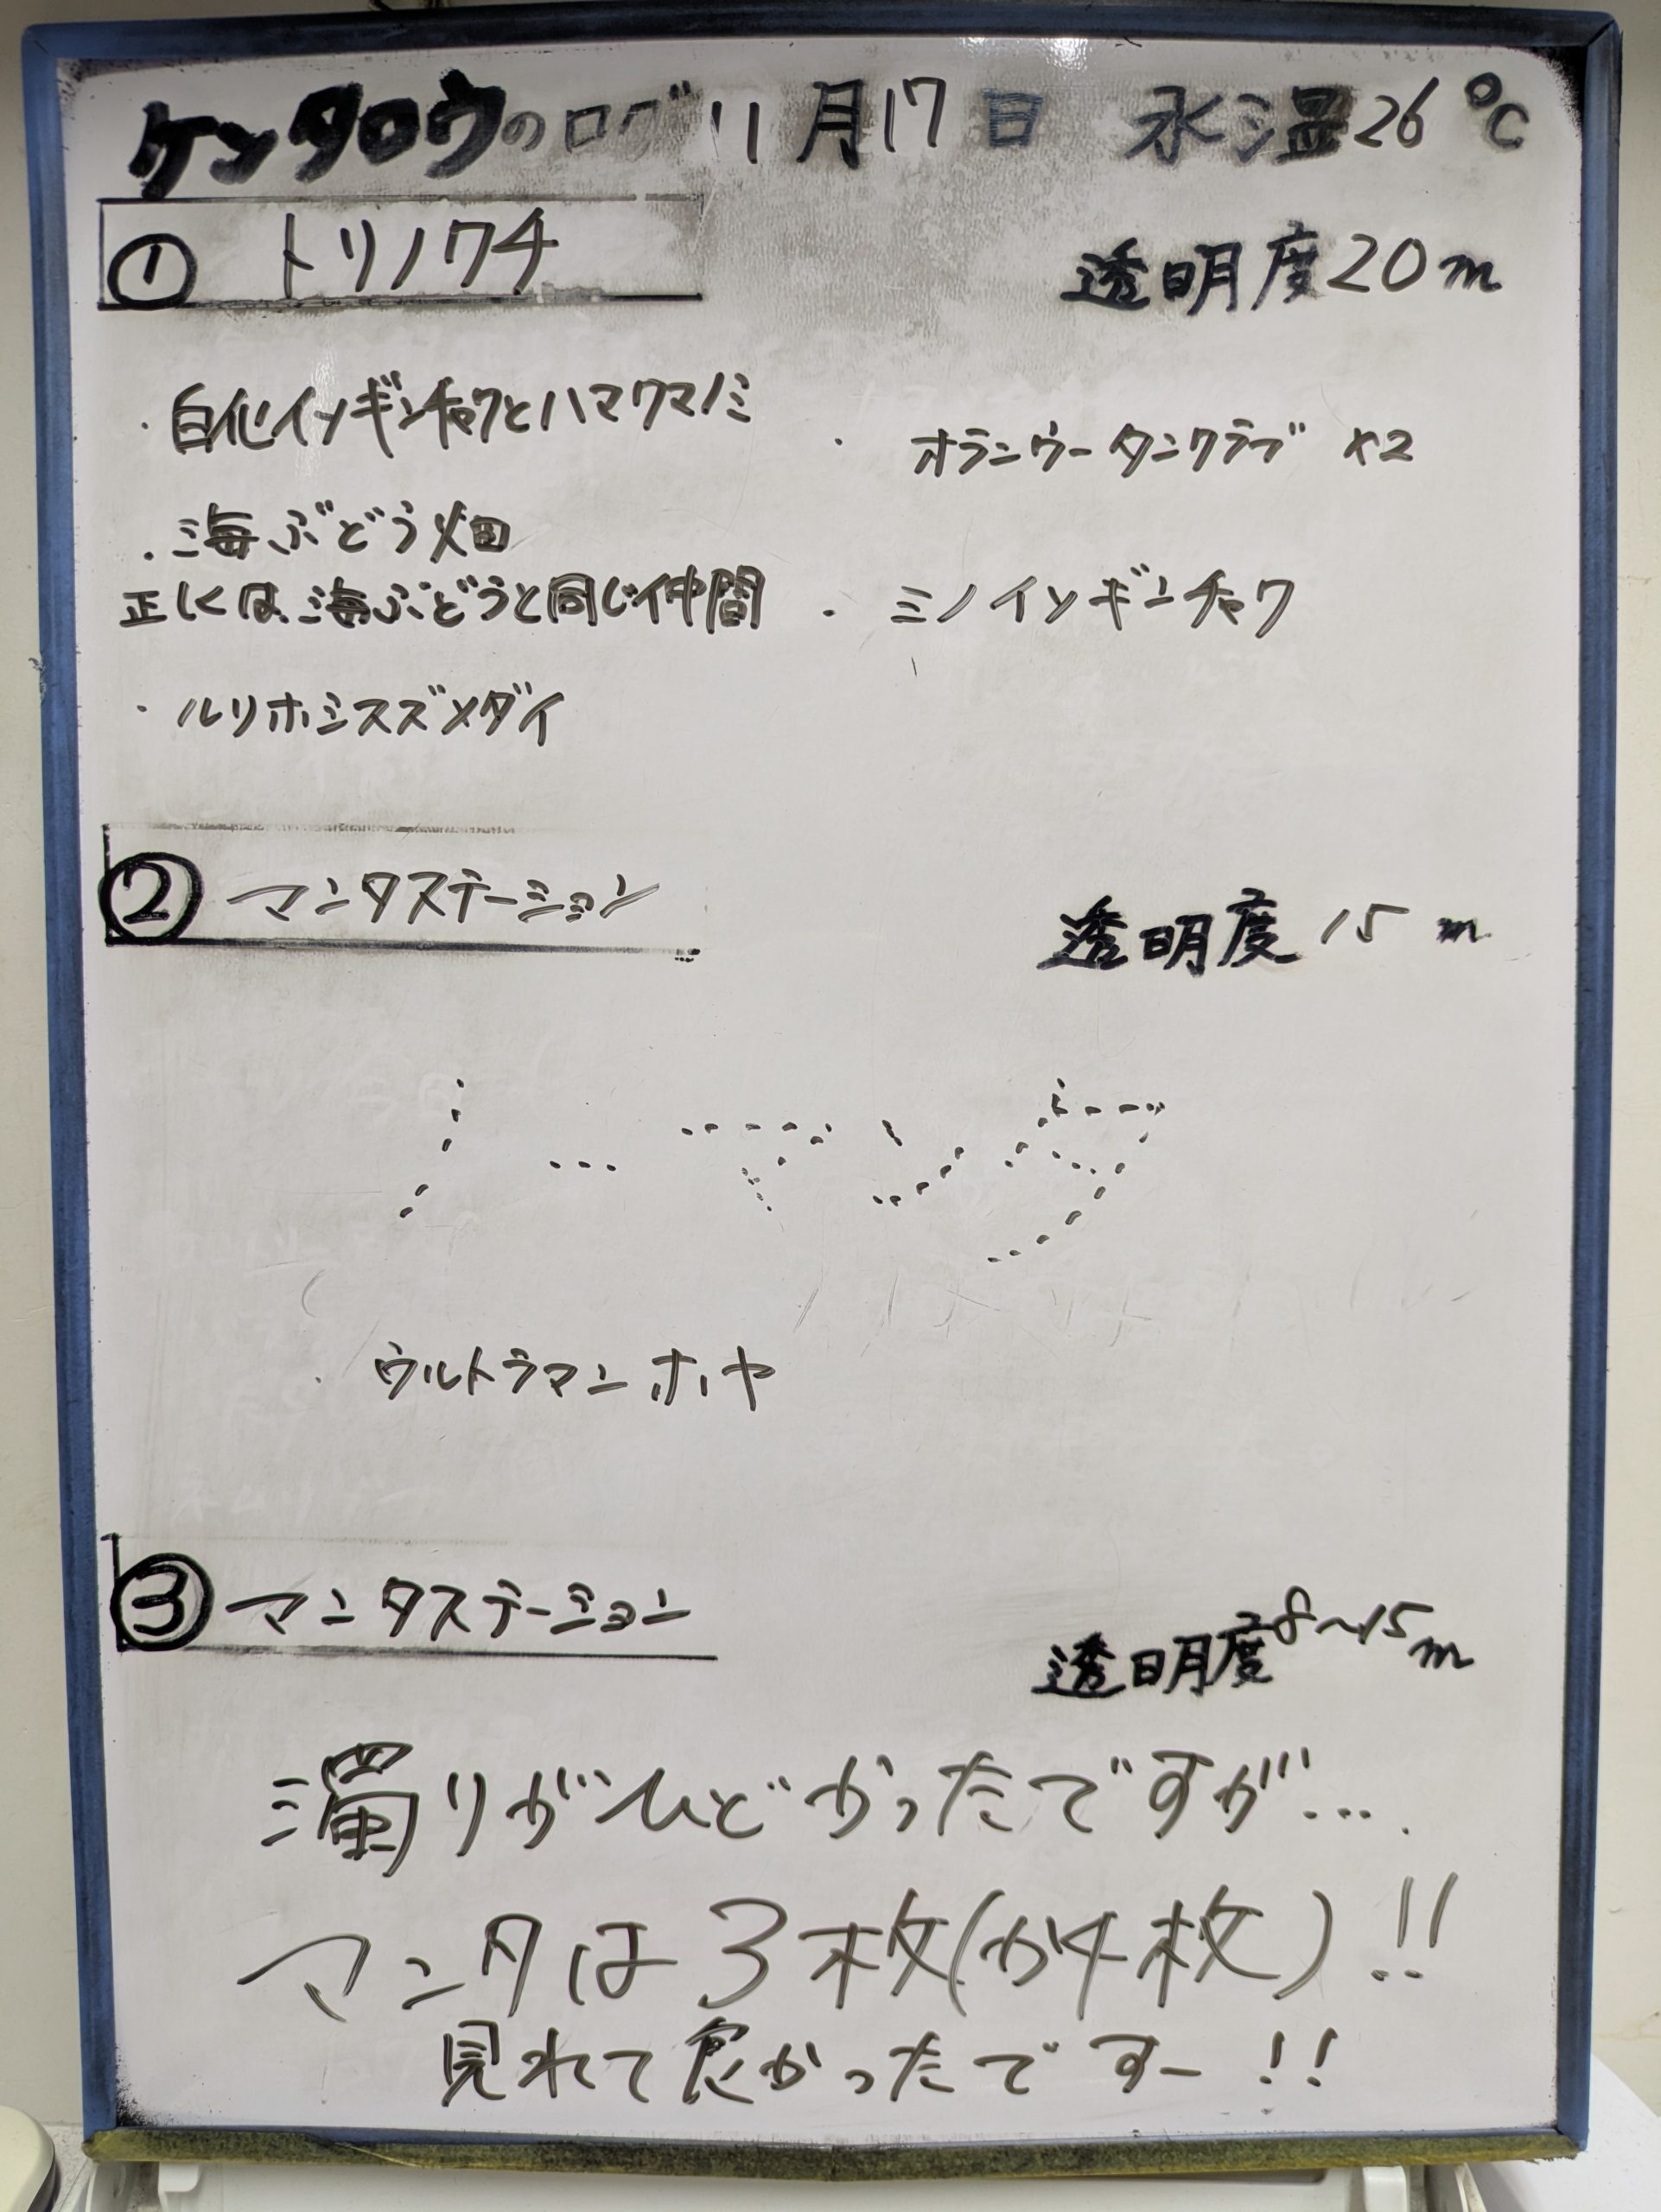 ケンタロウのログ 11月17日 水温26℃
① トリノクチ 透明度20m
・白化イソギンチャクとハマクマノミ
・オランウータンクラブ ×2
・海ぶどう畑
正しくは、海ぶどうと同じ仲間
・ミノイソギンチャク
・ルリホシスズメダイ
② マンタステーション 透明度15m
ノーマンタ
・ウルトラマンホヤ
③ マンタステーション 透明度8〜15m
濁りがひどかったですが….
マンタは3枚(か4枚)!!
見れて良かったですー!!